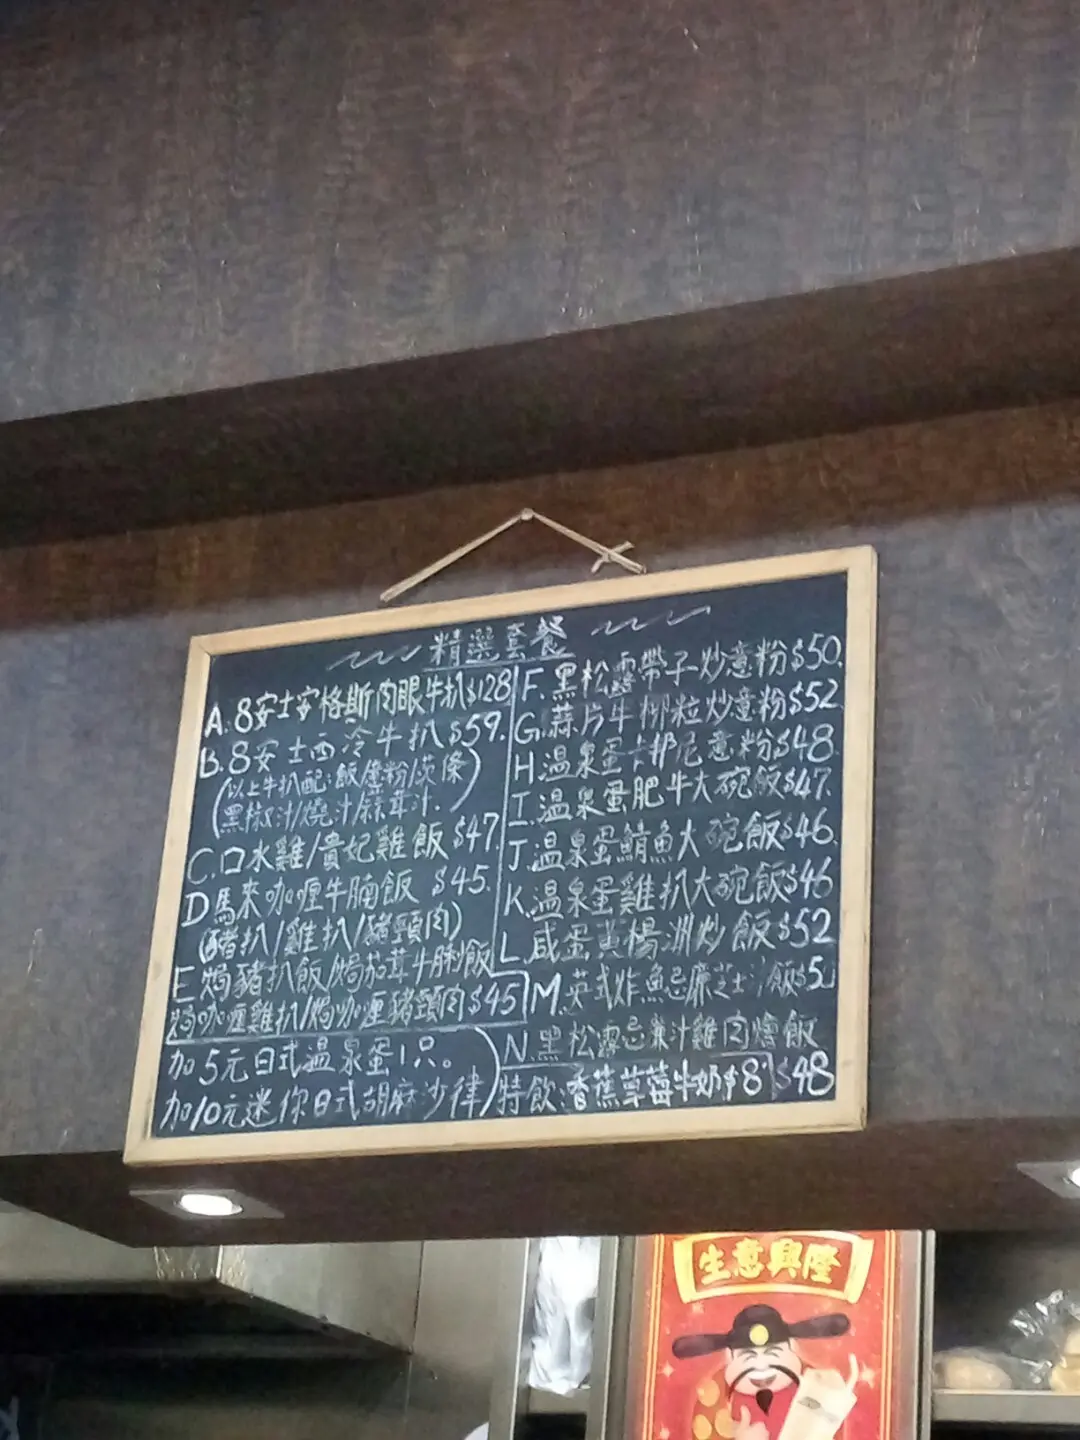 精選套餐
A. 8安士安格斯肉眼牛扒$128
B. 8安士西冷牛扒 $59.
(以上牛扒配:飯/意粉/炎條
黑椒汁/燒汁/蒜茸汁.)
C. 口水雞/貴妃雞飯 $47.
D 馬來咖喱牛腩飯 $45.
(豬扒/雞扒/豬頸肉)
E 焗豬扒飯/焗茄茸牛脷飯
焗咖喱雞扒/焗咖喱豬頸肉$45
加5元日式温泉蛋1只。
加10元迷你日式胡麻沙律
F. 黑松露帶子炒意粉$50.
G. 蒜片牛柳粒炒意粉$52
H 温泉蛋卡邦尼意粉$48
I. 温泉蛋肥牛大碗飯$47.
J. 温泉蛋鯖魚大碗飯$46.
K. 温泉蛋雞扒大碗飯$46
L. 咸蛋黃楊洲炒飯$52
M. 英式炸魚忌廉芝士汁飯
N. 黑松露忌廉汁雞肉燴飯
$48
特飲:香蕉草莓牛奶$8
生意興隆